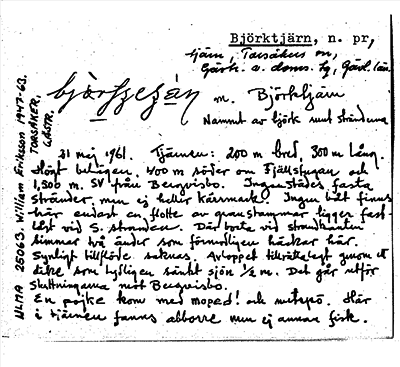 Björktjärn, n. pr,
tjärn, Torsåkers sn,
Gästr. ö. doms. tg, Gävl. län.
m. Björktjärn
Namnet av björk runt stränderna
31 maj 1961. Tjärnen: 200 m bred, 300 m lång.
Högt belägen. 400 m söder om Fjällstugan och
1,500 m. SV från Bergvisbo. Ingenstädes fasta
stränder, men ej heller kärrmark. Ingen båt finns
här endast en flotte av granstammar ligger fast-
låst vid S. stranden. Där borta vid strandkanten
simmar två änder som förmodligen häckar här.
Synligt tillflöde saknas. Avloppet tillrättalagt genom ett
dike som tydligen sänkt sjön ½ m. Det går utför
sluttningarna mot Bergvisbo.
En pojke kom med moped! och metspö. Här
i tjärnen fanns abborre men ej annan fisk.
ULMA 25063. William Eriksson 1947-63.
TORSÅKER,
GÄSTR.